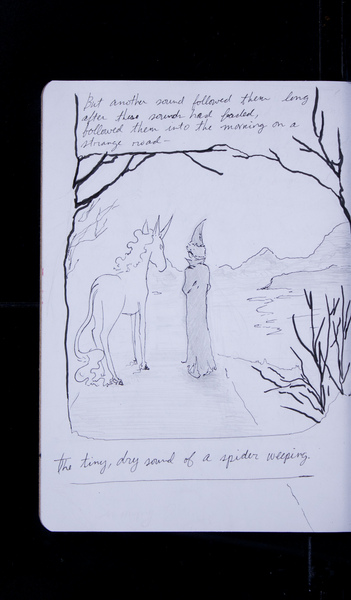 But another sound followed them long
after these sounds had faded,
followed them into the morning on a
strange road—
the tiny, dry sound of a spider weeping.